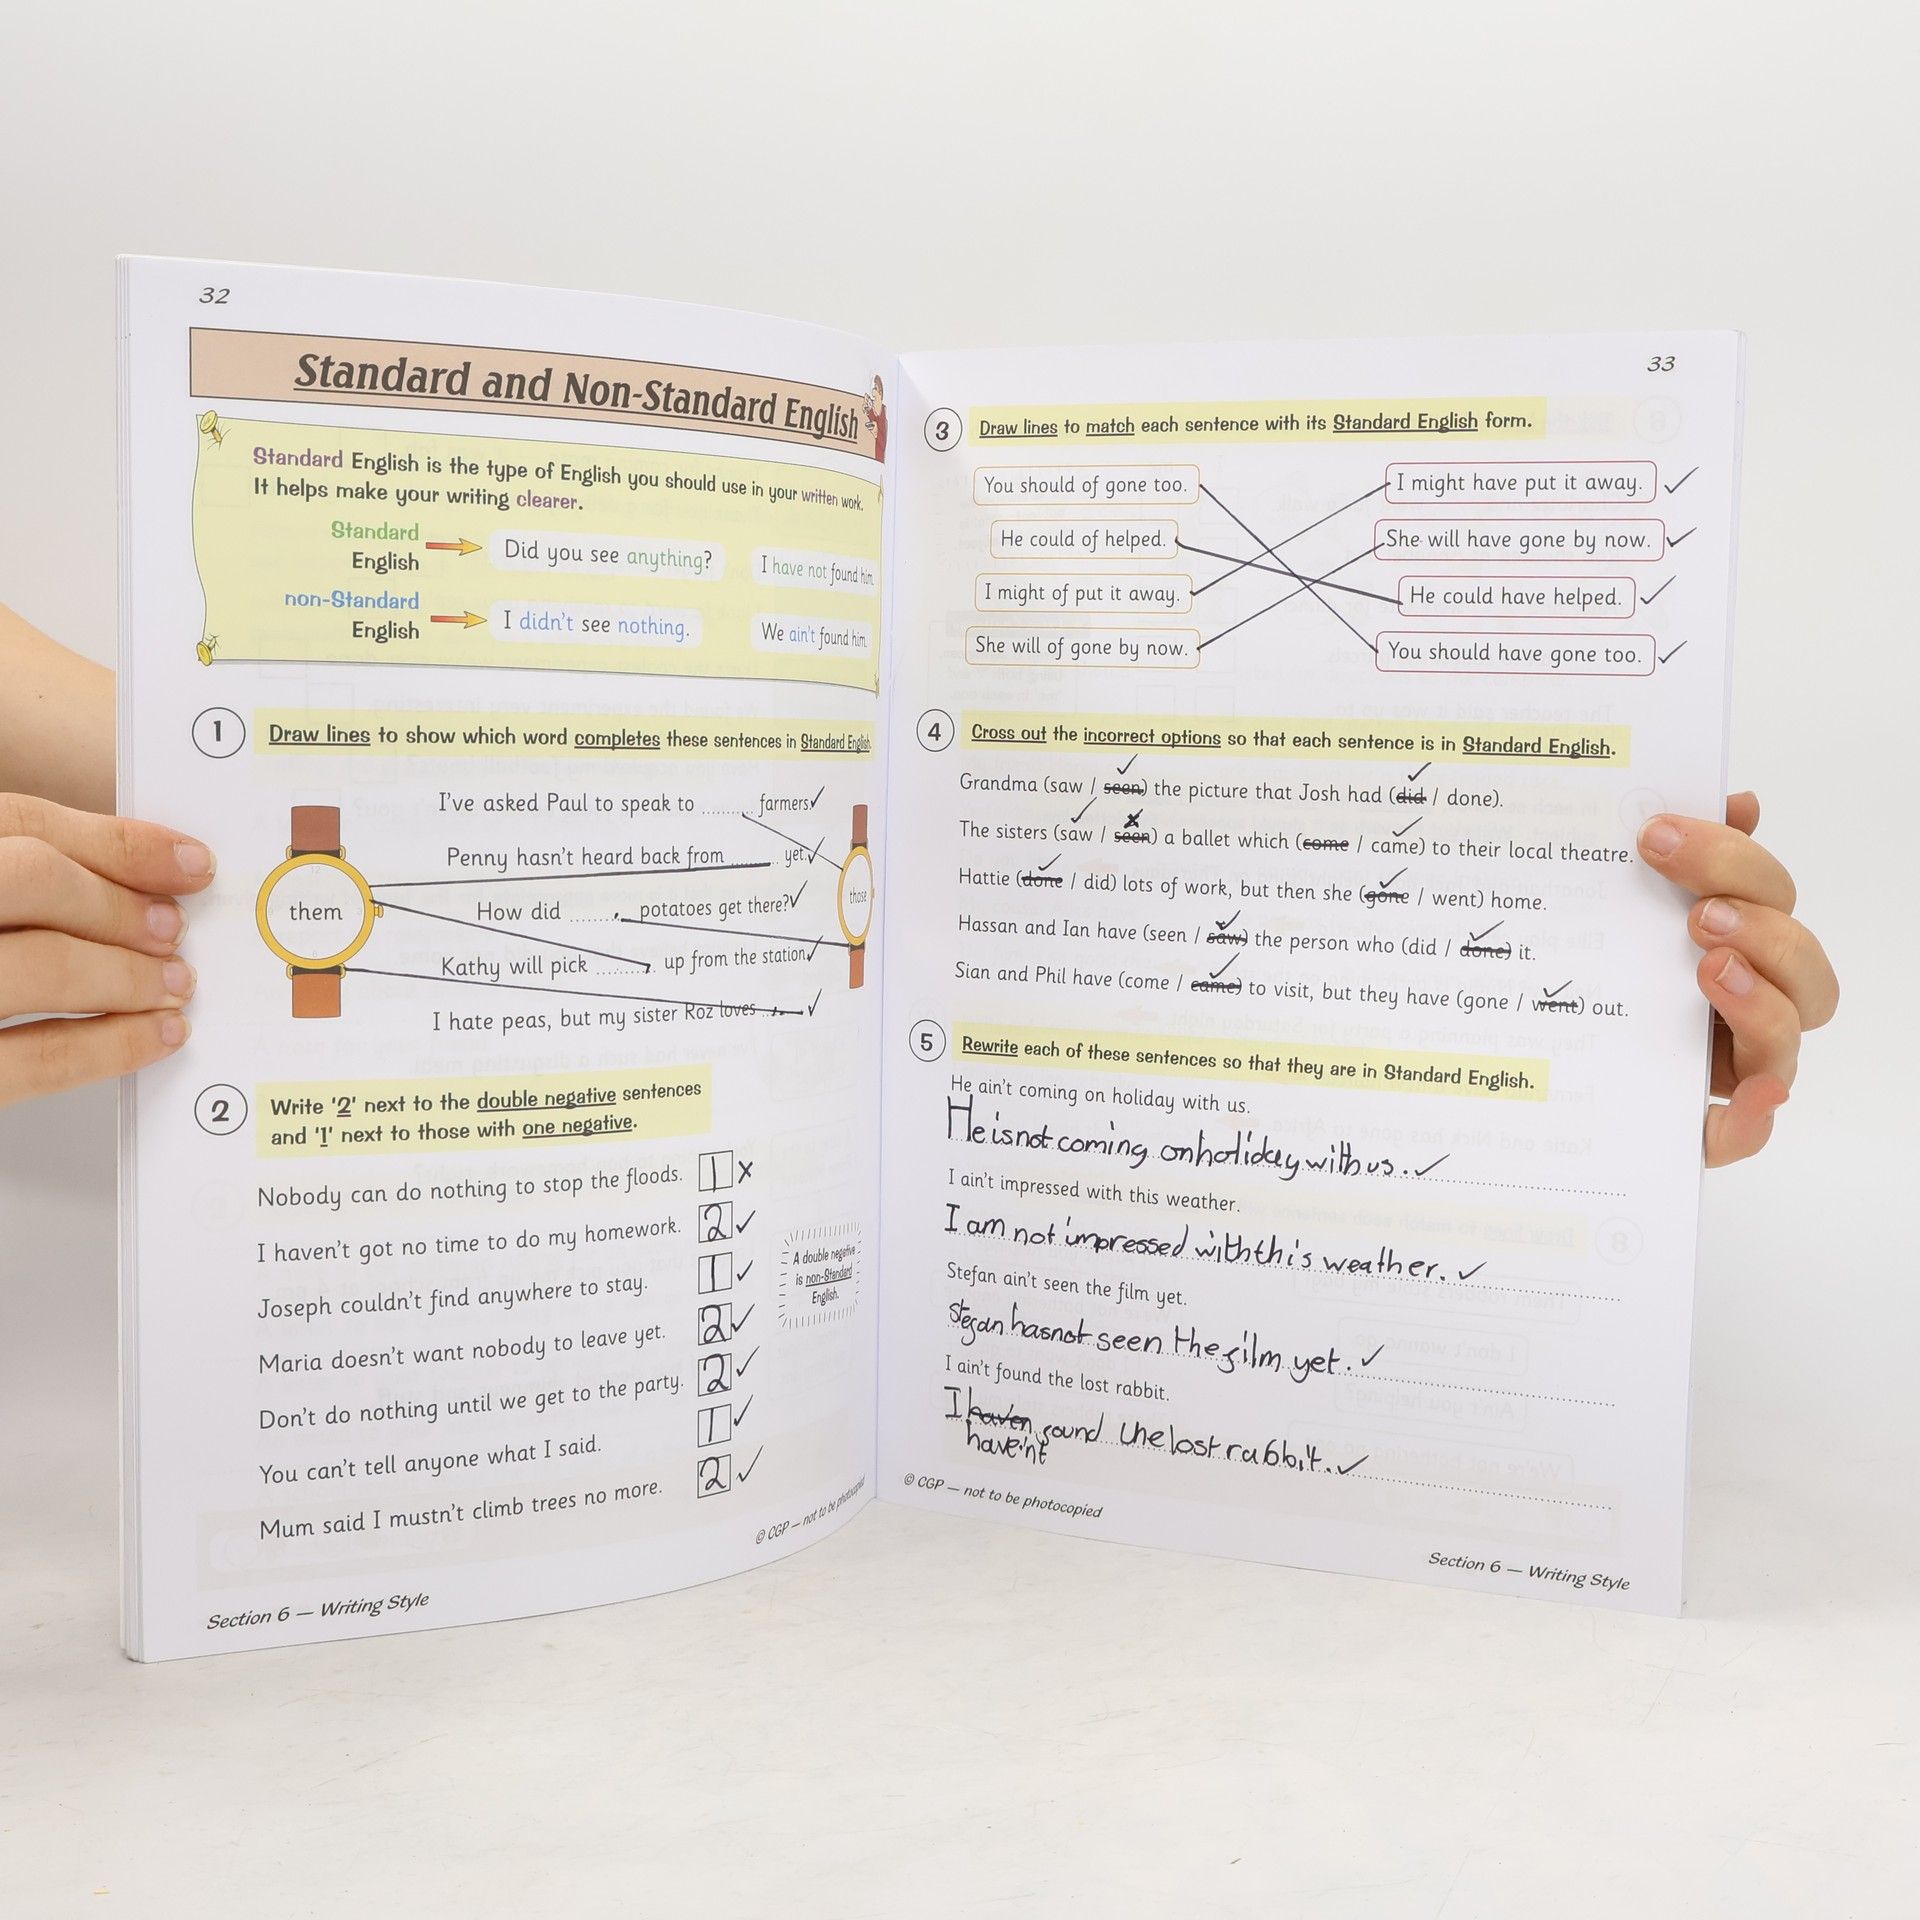 32
Standard and Non-Standard English
Standard English is the type of English you should use in your written work.
It helps make your writing clearer.
Standard English Did you see anything? I have not found him.
non-Standard English I didn't see nothing. We ain't found him.
1 Draw lines to show which word completes these sentences in Standard English.
I've asked Paul to speak to ......... farmers. ✓
Penny hasn't heard back from ......... yet. ✓
How did ......... potatoes get there? ✓
Kathy will pick ......... up from the station. ✓
I hate peas, but my sister Roz loves ......... ✓
them
those
2 Write '2' next to the double negative sentences
and '1' next to those with one negative.
Nobody can do nothing to stop the floods. 1 x
I haven't got no time to do my homework. 2 ✓
Joseph couldn't find anywhere to stay. 1 ✓
Maria doesn't want nobody to leave yet. 2 ✓
Don't do nothing until we get to the party. 2 ✓
You can't tell anyone what I said. 1 ✓
Mum said I mustn't climb trees no more. 2 ✓
A double negative
is non-Standard
English.
© CGP — not to be photocopied
Section 6 — Writing Style
33
3 Draw lines to match each sentence with its Standard English form.
You should of gone too. I might have put it away. ✓
He could of helped. She will have gone by now. ✓
I might of put it away. He could have helped. ✓
She will of gone by now. You should have gone too. ✓
4 Cross out the incorrect options so that each sentence is in Standard English.
Grandma (saw / seen) the picture that Josh had (did / done).
The sisters (saw / seen) a ballet which (come / came) to their local theatre.
Hattie (done / did) lots of work, but then she (gone / went) home.
Hassan and Ian have (seen / saw) the person who (did / done) it.
Sian and Phil have (come / came) to visit, but they have (gone / went) out.
5 Rewrite each of these sentences so that they are in Standard English.
He ain't coming on holiday with us.
He is not coming on holiday with us. ✓
I ain't impressed with this weather.
I am not impressed with this weather. ✓
Stefan ain't seen the film yet.
Stefan has not seen the film yet. ✓
I ain't found the lost rabbit.
I haven found the lost rabbit. ✓
have'nt
© CGP — not to be photocopied
Section 6 — Writing Style